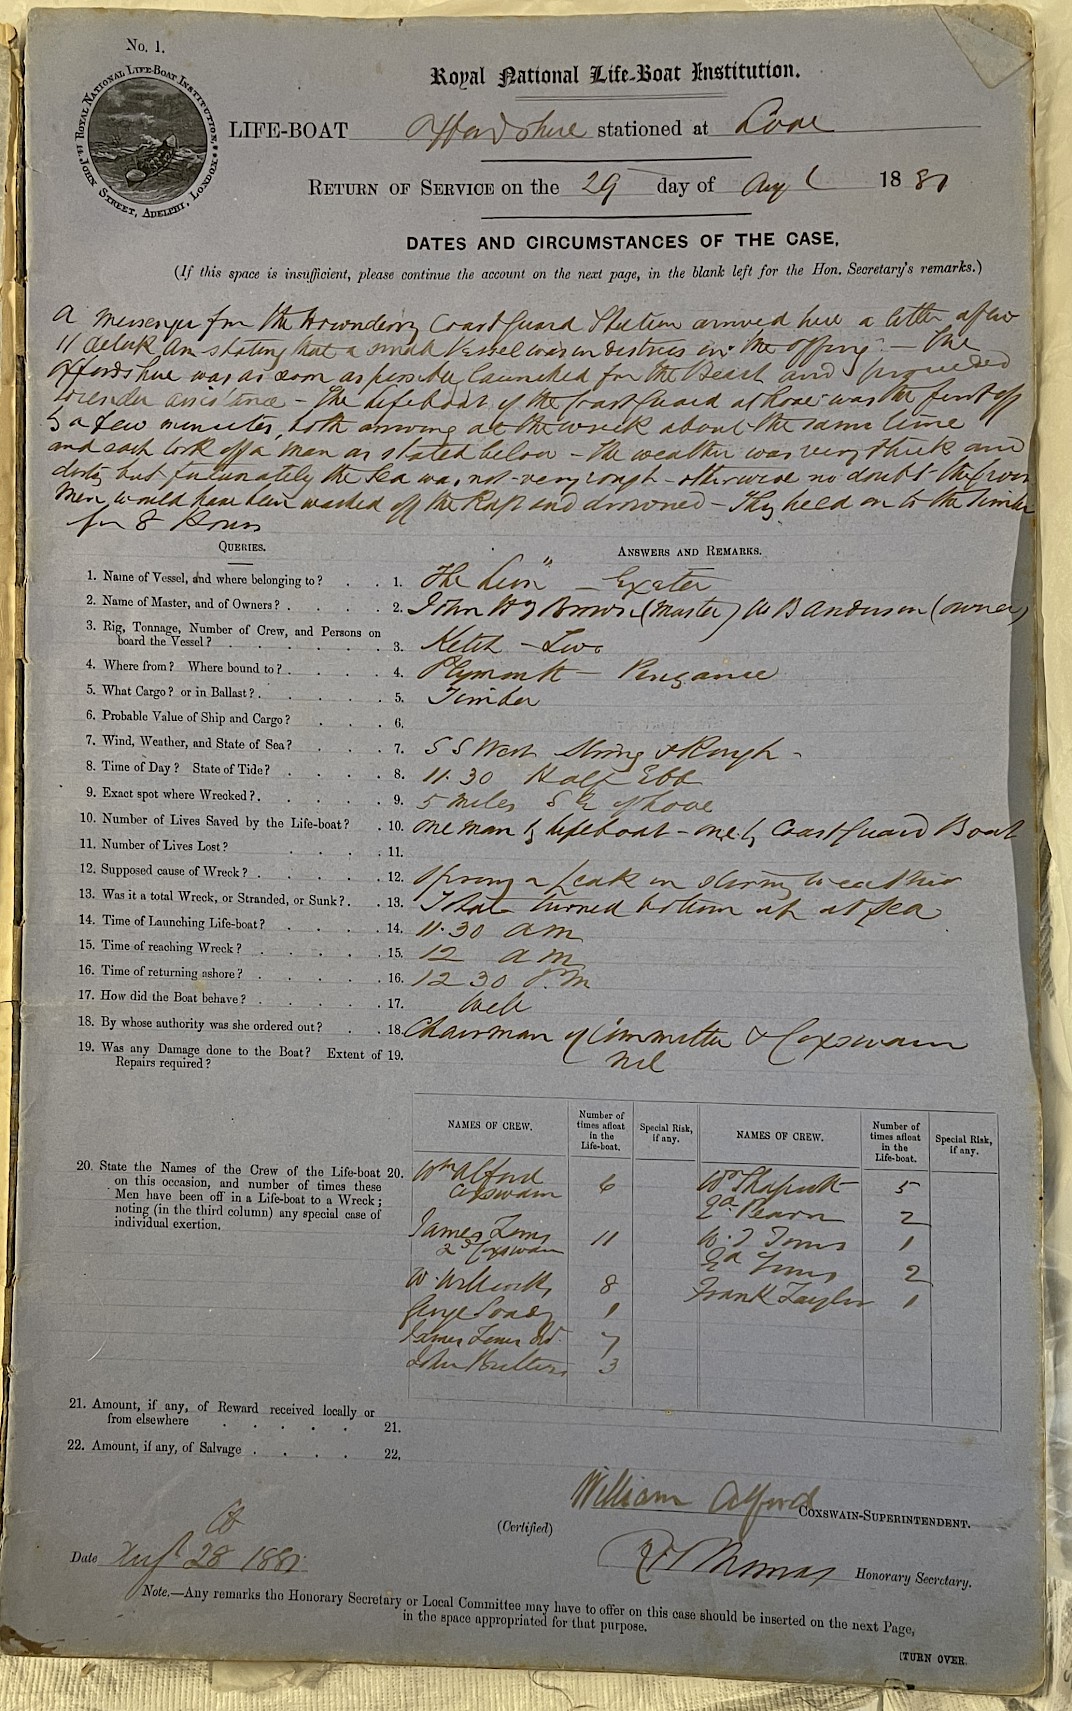 No. 1.
ROYAL NATIONAL LIFE-BOAT INSTITUTION,
JOHN STREET, ADELPHI, LONDON.
Royal National Life-Boat Institution.
LIFE-BOAT Oxfordshire stationed at Looe
RETURN OF SERVICE on the 29 day of Augt 1881
DATES AND CIRCUMSTANCES OF THE CASE,
(If this space is insufficient, please continue the account on the next page, in the blank left for the Hon. Secretary's remarks.)
A messenger from the Downderry Coast Guard Station arrived here a little after
11 oclock am stating that a small Vessel was in distress in the offing — The
Oxfordshire was as soon as possible launched from the Beach and proceeded
to render assistance – The lifeboat of the Coast Guard at Looe was the first off
by a few minutes, both arriving at the wreck about the same time
and each took off a man as stated below – The weather was very thick and
dirty but fortunately the Sea was not very rough – otherwise no doubt the poor
Men would have been washed off the Raft and drowned – They held on to the Timber
for 8 Hours
QUERIES.
ANSWERS AND REMARKS.
1. Name of Vessel, and where belonging to? 1. The Lion" – Exeter
2. Name of Master, and of Owners? 2. John Brown (Master) W B Anderson (owner)
3. Rig, Tonnage, Number of Crew, and Persons on
board the Vessel? 3. Ketch – Two
4. Where from? Where bound to? 4. Plymouth – Penzance
5. What Cargo? or in Ballast? 5. Timber
6. Probable Value of Ship and Cargo? 6.
7. Wind, Weather, and State of Sea? 7. S S West Strong & Rough –
8. Time of Day? State of Tide? 8. 11.30 Half Ebb
9. Exact spot where Wrecked? 9. 5 miles S E of Looe
10. Number of Lives Saved by the Life-boat? 10. one man by lifeboat – one by Coast Guard Boat
11. Number of Lives Lost? 11.
12. Supposed cause of Wreck? 12. Sprung a Leak in stormy weather
13. Was it a total Wreck, or Stranded, or Sunk? 13. Total turned bottom up at sea
14. Time of Launching Life-boat? 14. 11.30 am
15. Time of reaching Wreck? 15. 12 am
16. Time of returning ashore? 16. 12 30 P.M
17. How did the Boat behave? 17. Well
18. By whose authority was she ordered out? 18. Chairman of Committee & Coxswain
19. Was any Damage done to the Boat? Extent of 19. nil
Repairs required?
NAMES OF CREW. Number of times afloat in the Life-boat. Special Risk, if any. NAMES OF CREW. Number of times afloat in the Life-boat. Special Risk, if any.
20. State the Names of the Crew of the Life-boat 20.
on this occasion, and number of times these
Men have been off in a Life-boat to a Wreck;
noting (in the third column) any special case of
individual exertion.
Wm Alford
Coxswain 6
James Toms
2d Coxswain 11
W. Willcocks 8
1
James Toms 7
John 3
5
Pearn 2
W. J Toms 1
Toms 2
Frank Taylor 1
21. Amount, if any, of Reward received locally or
from elsewhere 21.
22. Amount, if any, of Salvage 22.
William Alford COXSWAIN-SUPERINTENDENT.
(Certified)
Thomas Honorary Secretary.
Date Augt 28 1881
Note.—Any remarks the Honorary Secretary or Local Committee may have to offer on this case should be inserted on the next Page,
in the space appropriated for that purpose.
[TURN OVER.